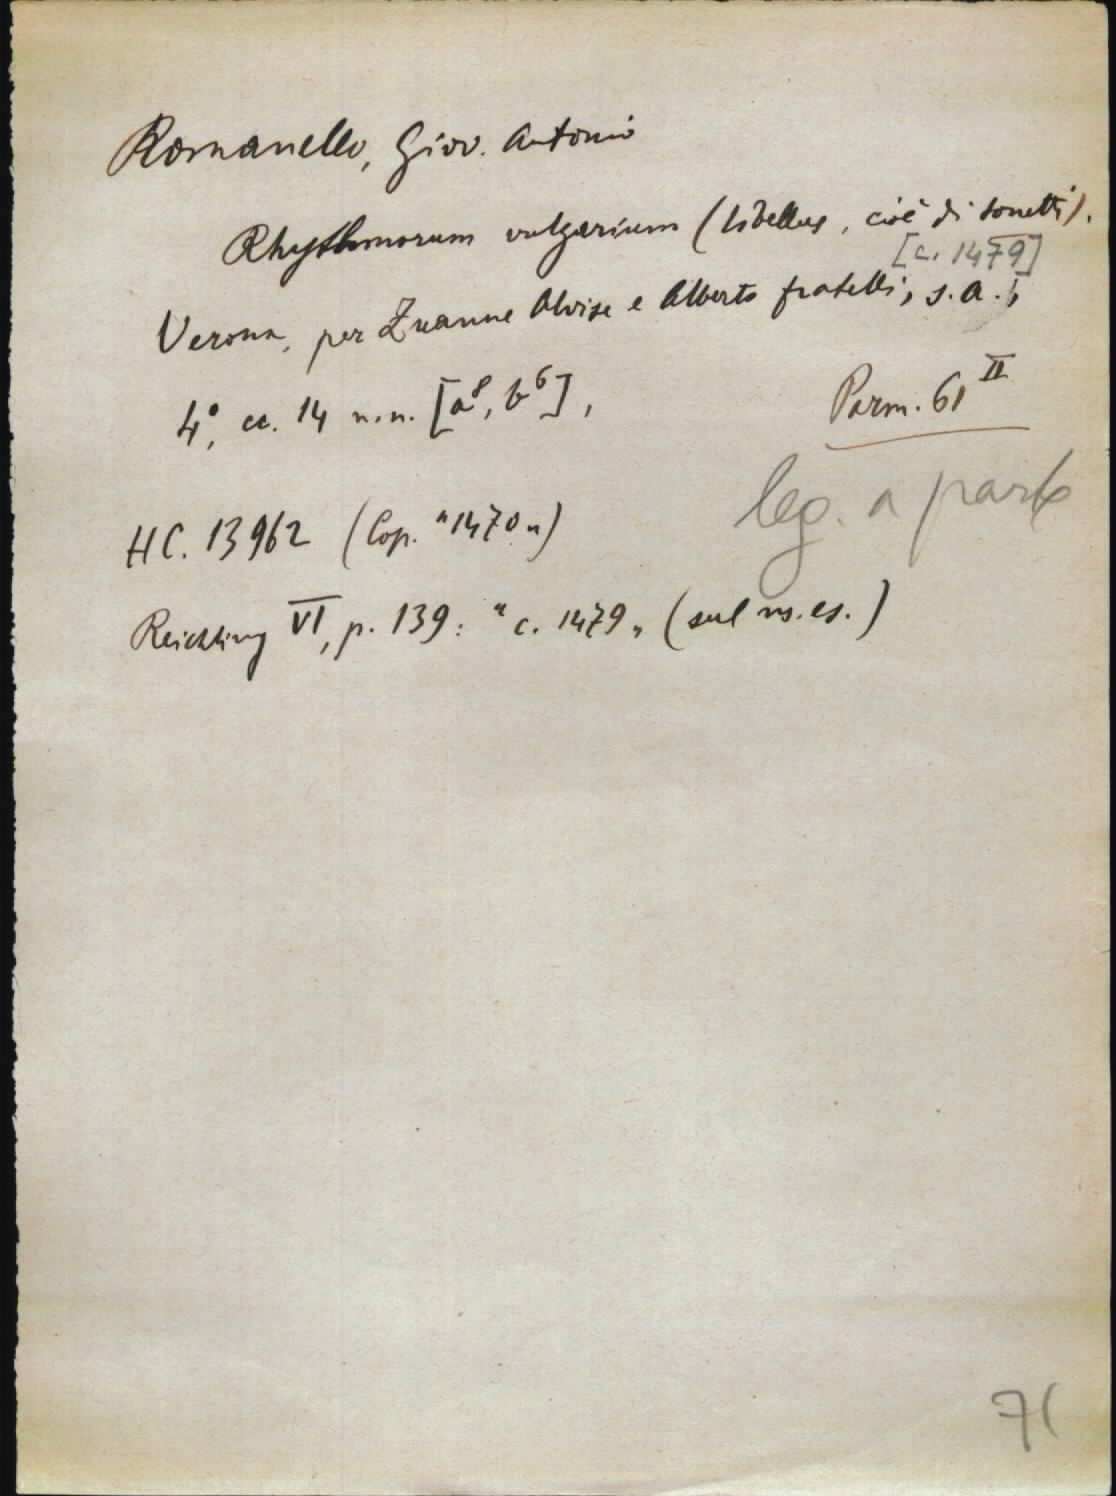 Romanello, Giov. Antonio
Rhythmorum vulgarium (libellus, cioè di sonetti).
[c. 1479]
Verona, per Zuanne Alvise e Alberto fratelli, s. a.,
4°, cc. 14 n. n. [a⁸, b⁶],
Parm. 61 II
leg. a parte
HC. 13962 (Cop. "1470")
Reichling VI, p. 139: "c. 1479" (sul ns. es.)
71